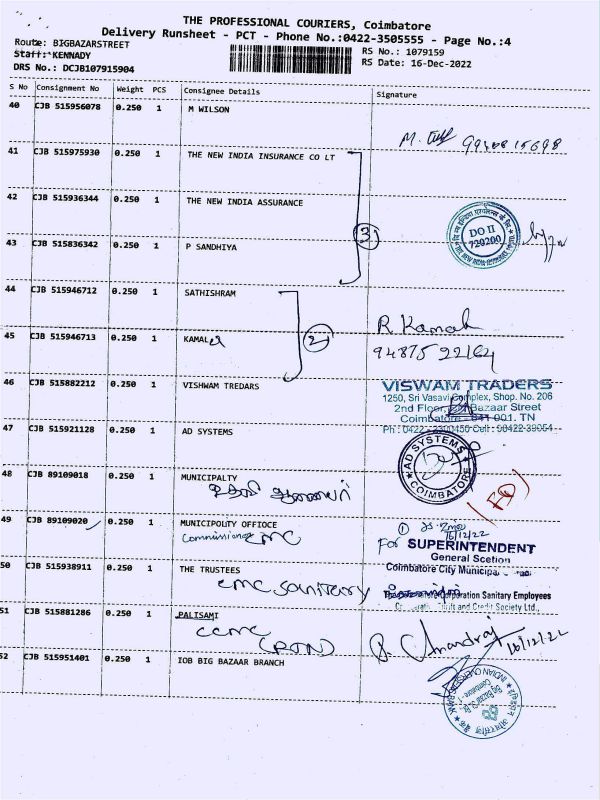 THE PROFESSIONAL COURIERS, Coimbatore
Delivery Runsheet - PCT - Phone No.:0422-3505555 - Page No.:4
Route: BIGBAZARSTREET
RS No.: 1079159
Staff: KENNADY
RS Date: 16-Dec-2022
DRS No.: DCJB107915904
S No Consignment No Weight PCS Consignee Details Signature
40 CJB 515956078 0.250 1 M WILSON
M.
41 CJB 515975930 0.250 1 THE NEW INDIA INSURANCE CO LT
42 CJB 515936344 0.250 1 THE NEW INDIA ASSURANCE
3
DO II
720200
43 CJB 515836342 0.250 1 P SANDHIYA
44 CJB 515946712 0.250 1 SATHISHRAM
R. Kamal
45 CJB 515946713 0.250 1 KAMAL
2
94875 92164
46 CJB 515882212 0.250 1 VISHWAM TREDARS
VISWAM TRADERS
1250, Sri Vasavi Complex, Shop. No. 206
2nd Floor, Bazaar Street
Coimbatore - 641 001. TN
47 CJB 515921128 0.250 1 AD SYSTEMS
AD SYSTEMS
COIMBATORE
48 CJB 89109018 0.250 1 MUNICIPALTY
49 CJB 89109020 0.250 1 MUNICIPOLITY OFFIOCE
Commissioner CMC
16/12/22
For SUPERINTENDENT
General Scetion
Coimbatore City Municipal
50 CJB 515938911 0.250 1 THE TRUSTEES
CMC Sanitary
Corporation Sanitary Employees
and Credit Society Ltd.,
51 CJB 515881286 0.250 1 PALISAMI
CCMC
16/12/22
52 CJB 515951401 0.250 1 IOB BIG BAZAAR BRANCH
INDIAN OVERSEAS BANK